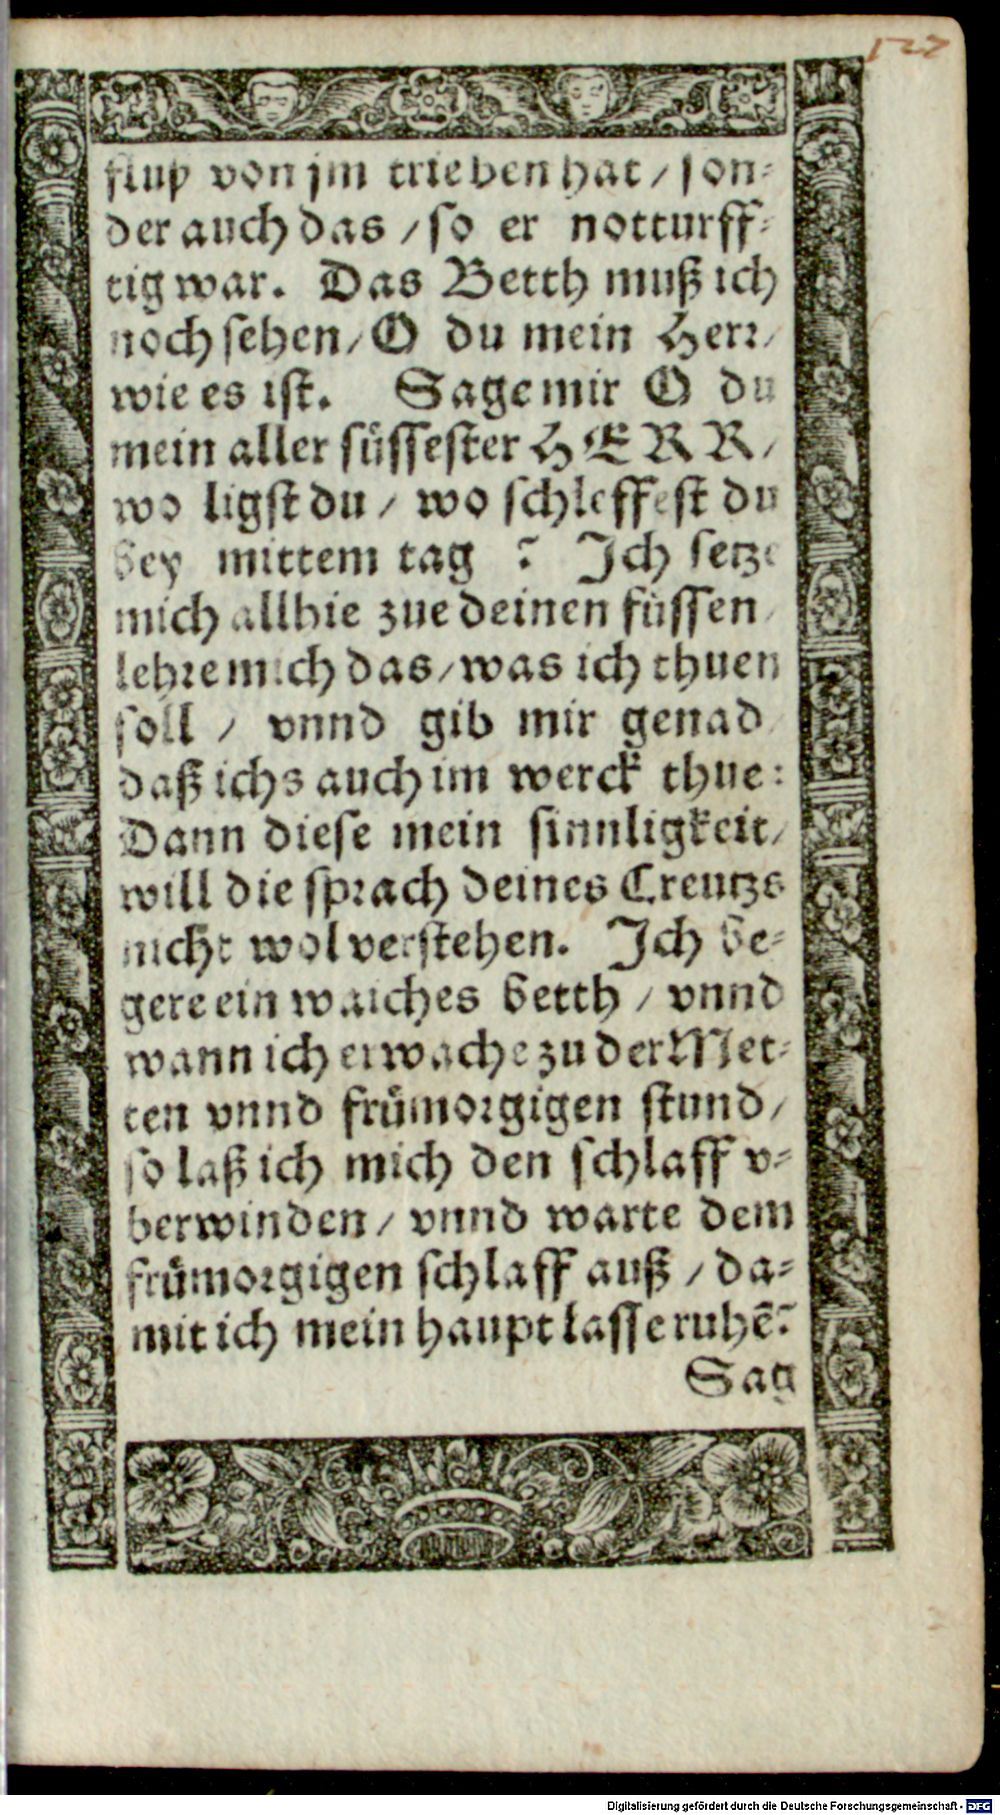 127
fluß von jm trieben hat / son-
der auch das / so er notturff-
tig war. Das Betth muß ich
noch sehen / O du mein Herr /
wie es ist. Sage mir O du
mein aller süssester HERR /
wo ligst du / wo schleffest du
bey mittem tag ? Ich setze
mich allhie zue deinen füssen /
lehre mich das / was ich thuen
soll / vnnd gib mir genad /
daß ichs auch im werck thue:
Dann diese mein sinnligkeit /
will die sprach deines Creutzs
nicht wol verstehen. Ich be-
gere ein waiches betth / vnnd
wann ich erwache zu der Met-
ten vnnd frümorgigen stund /
so laß ich mich den schlaff v-
berwinden / vnnd warte dem
frümorgigen schlaff auß / da-
mit ich mein haupt lasse ruhē?
Sag
Digitalisierung gefördert durch die Deutsche Forschungsgemeinschaft - DFG